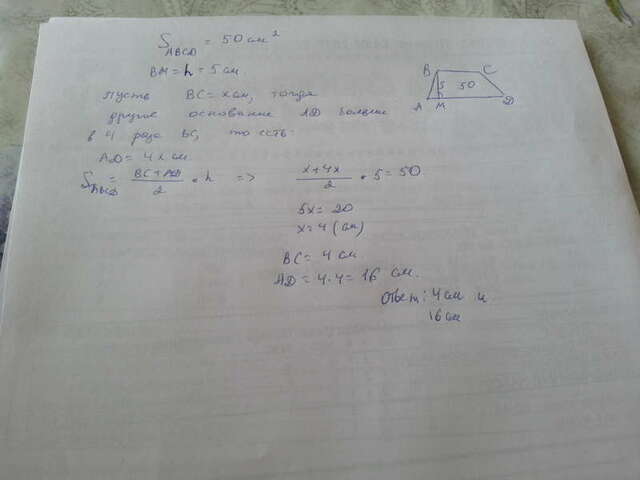 S ABCD = 50 см²
BM = h = 5 см
Пусть BC = x см, тогда
другое основание AD больше
в 4 раза BC, то есть:
AD = 4x см
S ABCD = (BC + AD)/2 • h => (x + 4x)/2 • 5 = 50
5x = 20
x = 4 (см)
BC = 4 см
AD = 4 · 4 = 16 см.
Ответ: 4 см и
16 см
B C
5 50
A M D